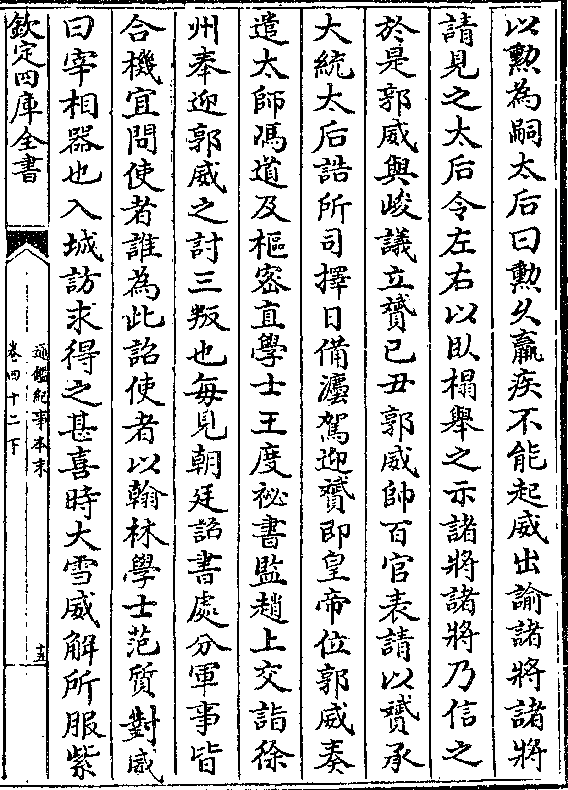 以勲為嗣太后曰勲久羸疾不能起威出諭諸將諸將
請見之太后令左右以臥榻舉之示諸將諸將乃信之
於是郭威與峻議立贇己丑郭威帥百官表請以贇承
大統太后誥所司擇日備灋駕迎贇即皇帝位郭威奏
遣太師馮道及樞密直學士王度祕書監趙上交詣徐
州奉迎郭威之討三叛也每見朝廷詔書處分軍事皆
合機宜問使者誰為此詔使者以翰林學士范質對威
曰宰相器也入城訪求得之甚喜時大雪威解所服紫
欽定四庫全書
通鑑紀事本末
卷四十二下
十五